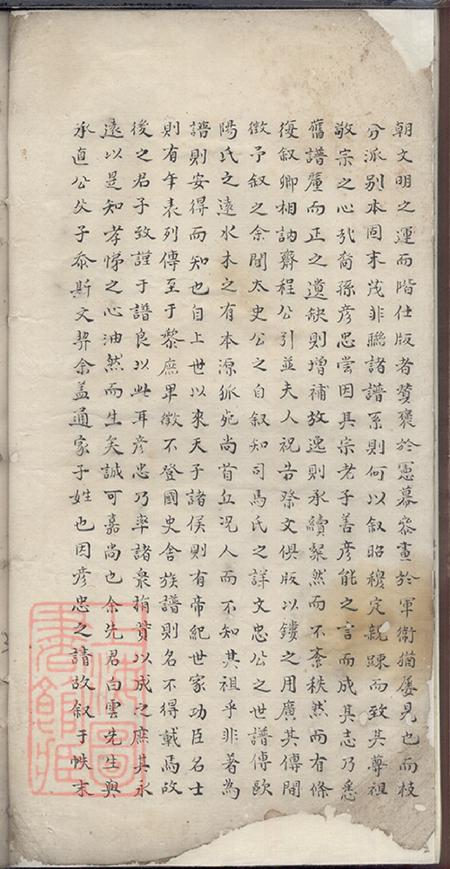 朝文明之運而階仕版者贊褒於憲幕參畫於軍衛猶屢見也而枝
分派別本固末茂非聯諸譜系則何以叙昭穆定親疎而致其尊祖
敬宗之心哉裔孫彦忠嘗因其宗老子善彦能之言而成其志乃悉
舊譜釐而正之遺缺則增補放逸則承續粲然而不紊秩然而有條
復叙卿相訥齋程公引並夫人祝告祭文俱版以鏤之用廣其傳閒
徵予叙之余聞太史公之自叙知司馬氏之詳文忠公之世譜傳歐
陽氏之遠水木之有本源狐死尚首丘况人而不知其祖乎非著為
譜則安得而知也自上世以來天子諸侯則有帝紀世家功臣名士
則有年表列傳至于黎庶卑微不登國史舍族譜則名不得載焉故
後之君子致謹于譜良以此耳彦忠乃率諸衆捐貲以成之庶其永
遠以是知孝悌之心油然而生矣誠可嘉尚也余先君白雲先生與
承直公父子泰斯文契余盖通家子姓也因彦忠之請故叙于帙末